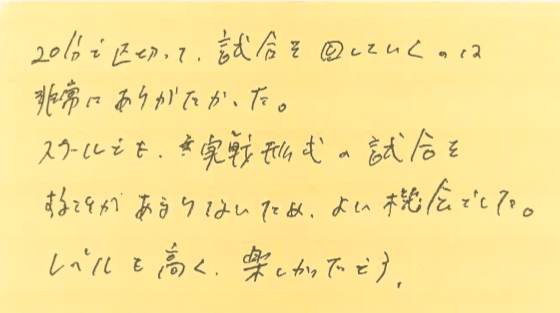 20分で区切って、試合を回していくのは
非常にありがたかった。
スクールでも、実戦形式の試合を
することがあまりないため、よい機会でした。
レベルも高く、楽しかったです。